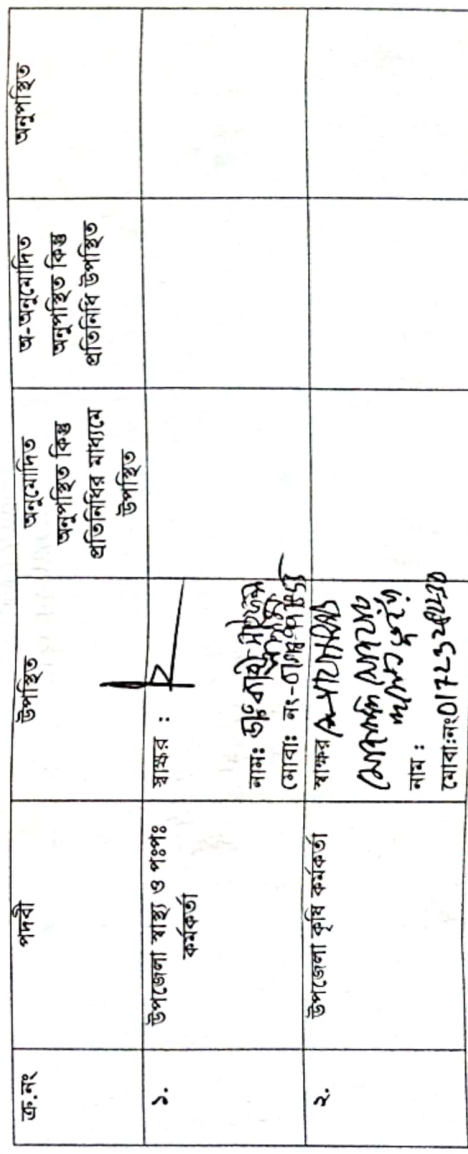 ক্র.নং
পদবী
উপস্থিত
অনুমোদিত
অনুপস্থিত কিন্তু
প্রতিনিধির মাধ্যমে
উপস্থিত
অ-অনুমোদিত
অনুপস্থিত কিন্তু
প্রতিনিধি উপস্থিত
অনুপস্থিত
১.
উপজেলা স্বাস্থ্য ও পঃপঃ
কর্মকর্তা
স্বাক্ষর :
নাম: ডাঃ
মোবা: নং-
২.
উপজেলা কৃষি কর্মকর্তা
স্বাক্ষর
নাম :
মোবা:নং